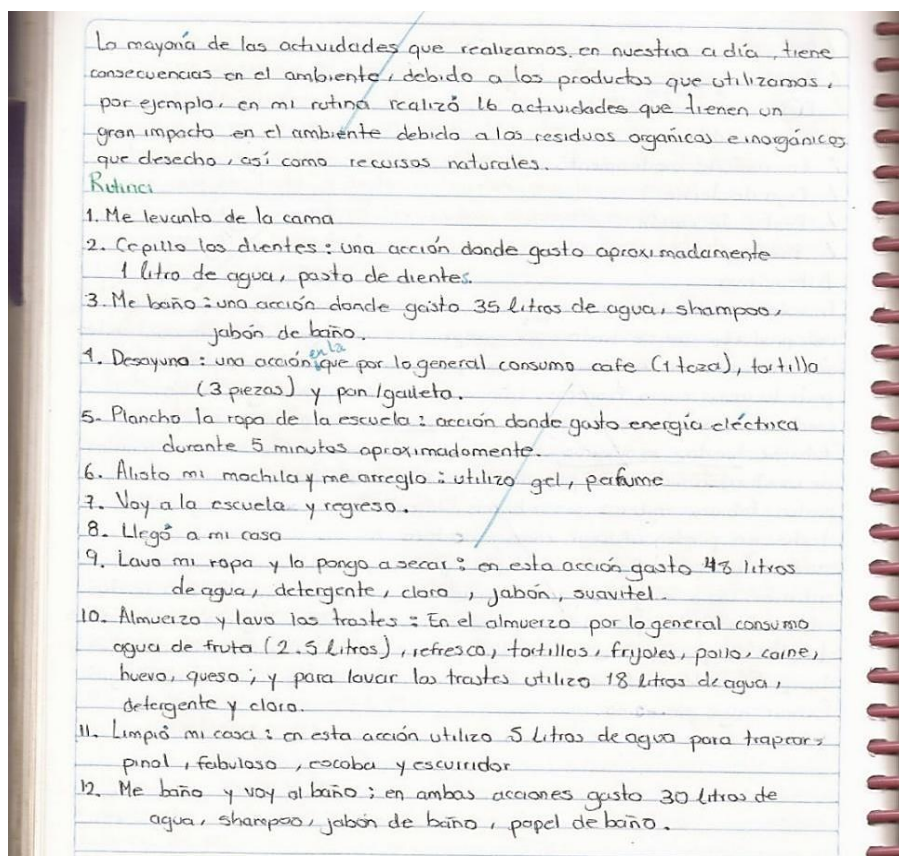 La mayoría de las actividades que realizamos, en nuestria a día, tiene
consecuencias en el ambiente, debido a los productos que utilizamos,
por ejemplo, en mi rutina realizó 16 actividades que tienen un
gran impacto en el ambiente debido a los residuos orgánicos e inorgánicos
que desecho, así como recursos naturales.
Rutina
1. Me levanto de la cama
2. Cepillo los dientes: una acción donde gasto aproximadamente
1 litro de agua, pasta de dientes.
3. Me baño: una acción donde gasto 35 litros de agua, shampoo,
jabón de baño.
4. Desayuno: una acción en la que por lo general consumo cafe (1 taza), tortilla
(3 piezas) y pan/galleta.
5. Plancho la ropa de la escuela: acción donde gasto energía eléctrica
durante 5 minutos aproximadamente.
6. Alisto mi mochila y me arreglo: utilizo gel, perfume
7. Voy a la escuela y regreso.
8. Llegó a mi casa
9. Lavo mi ropa y la pongo a secar: en esta acción gasto 48 litros
de agua, detergente, cloro, jabón, suavitel.
10. Almuerzo y lavo los trastes: En el almuerzo por lo general consumo
agua de fruta (2.5 litros), refresco, tortillas, frijoles, pollo, carne,
huevo, queso; y para lavar los trastes utilizo 18 litros de agua,
detergente y cloro.
11. Limpió mi casa: en esta acción utilizo 5 litros de agua para trapear,
pinol, fabuloso, escoba y escurridor
12. Me baño y voy al baño: en ambas acciones gasto 30 litros de
agua, shampoo, jabón de baño, papel de baño.